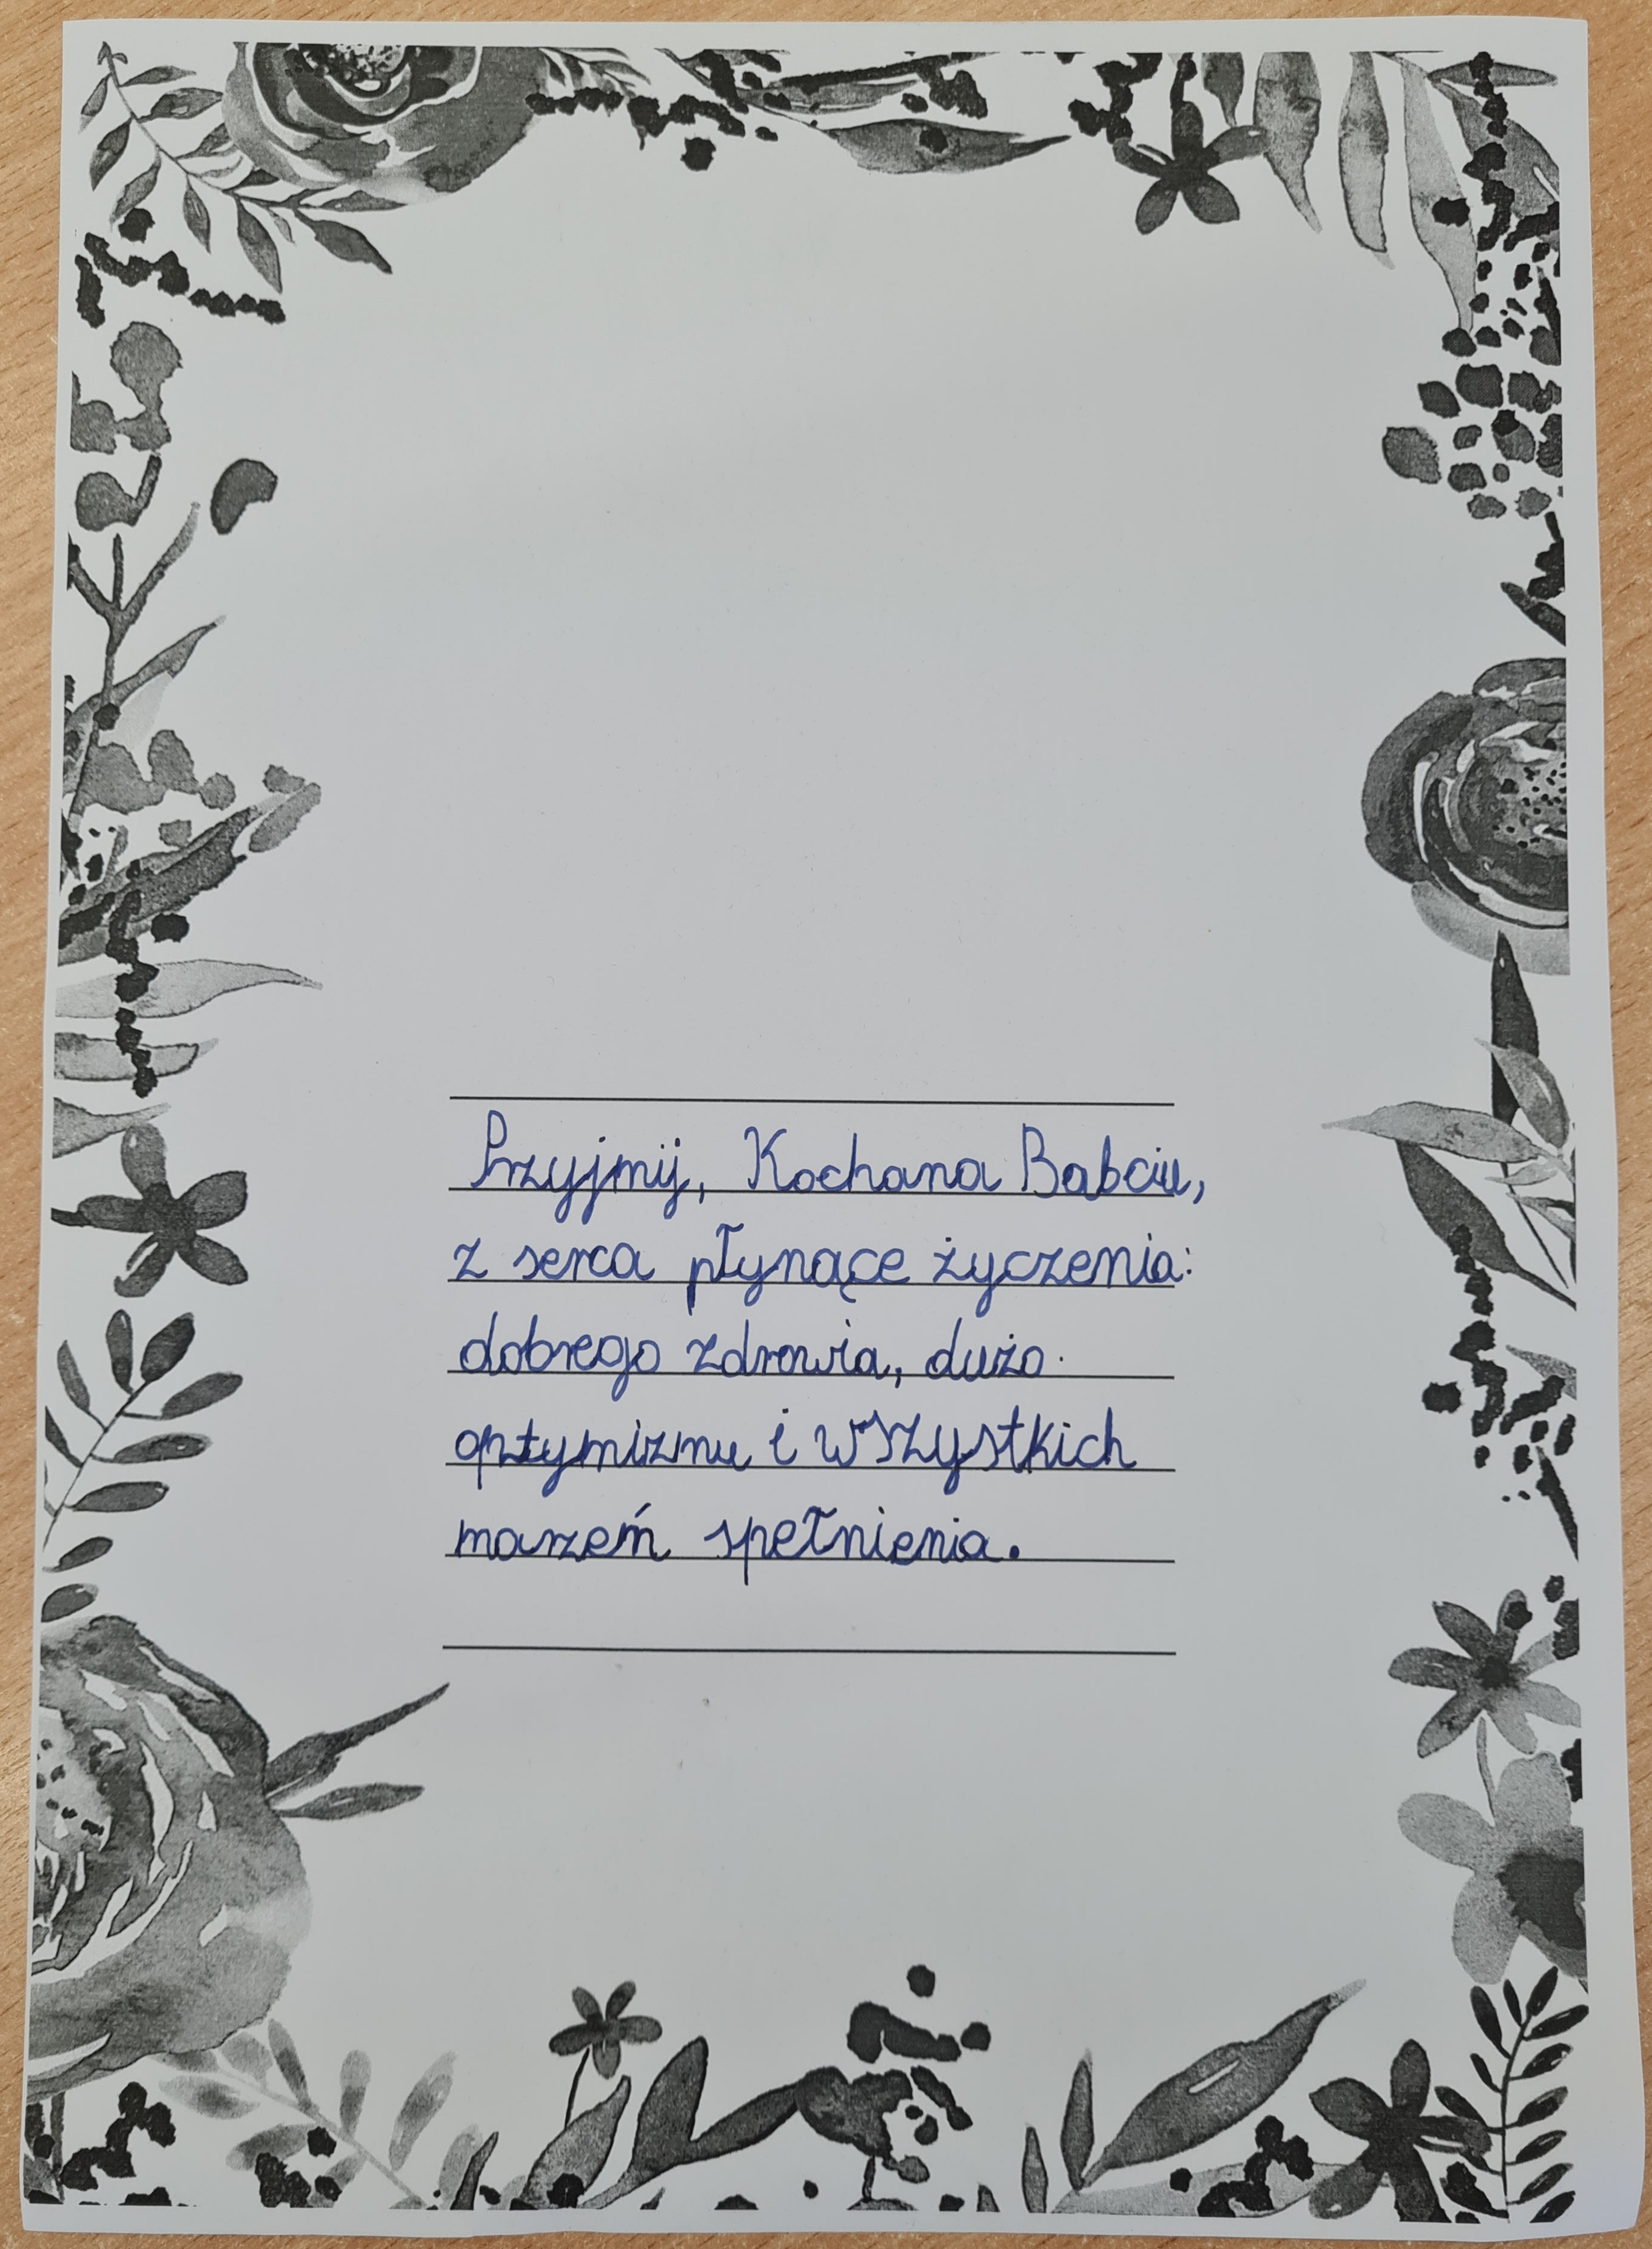 Przyjmij, Kochana Babciu,
z serca płynące życzenia:
dobrego zdrowia, dużo
optymizmu i wszystkich
marzeń spełnienia.